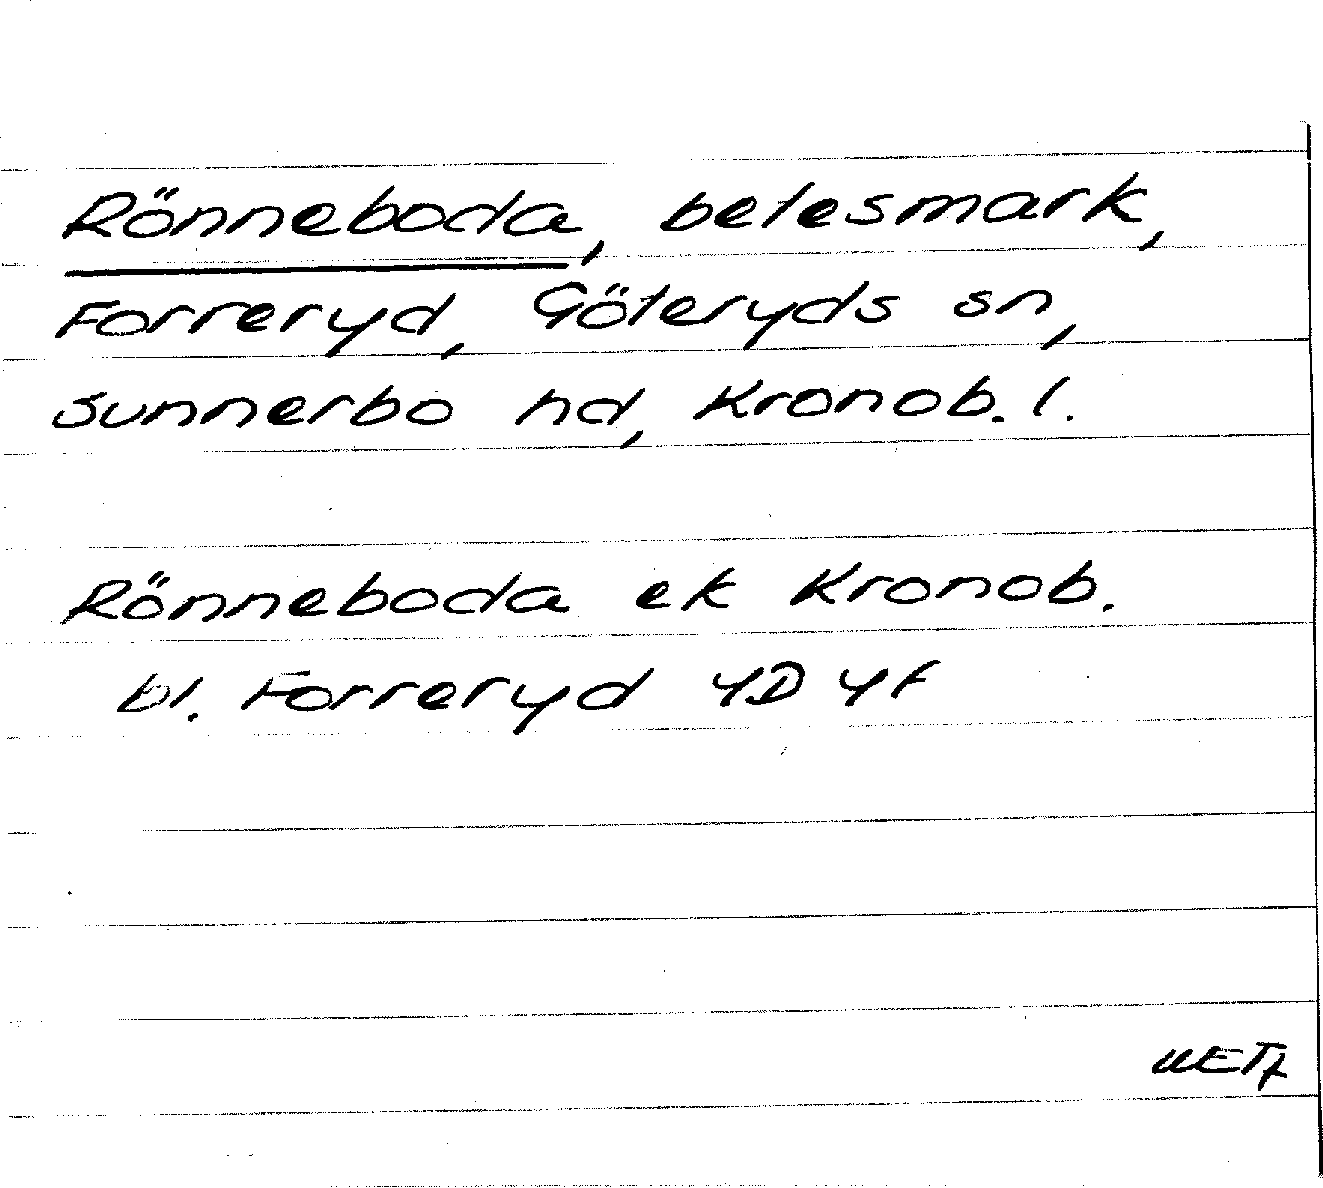 Rönneboda, betesmark,
Forreryd, Göteryds sn,
Sunnerbo hd, Kronob. l.
Rönneboda ek Kronob.
bl. Forreryd 4D 4f